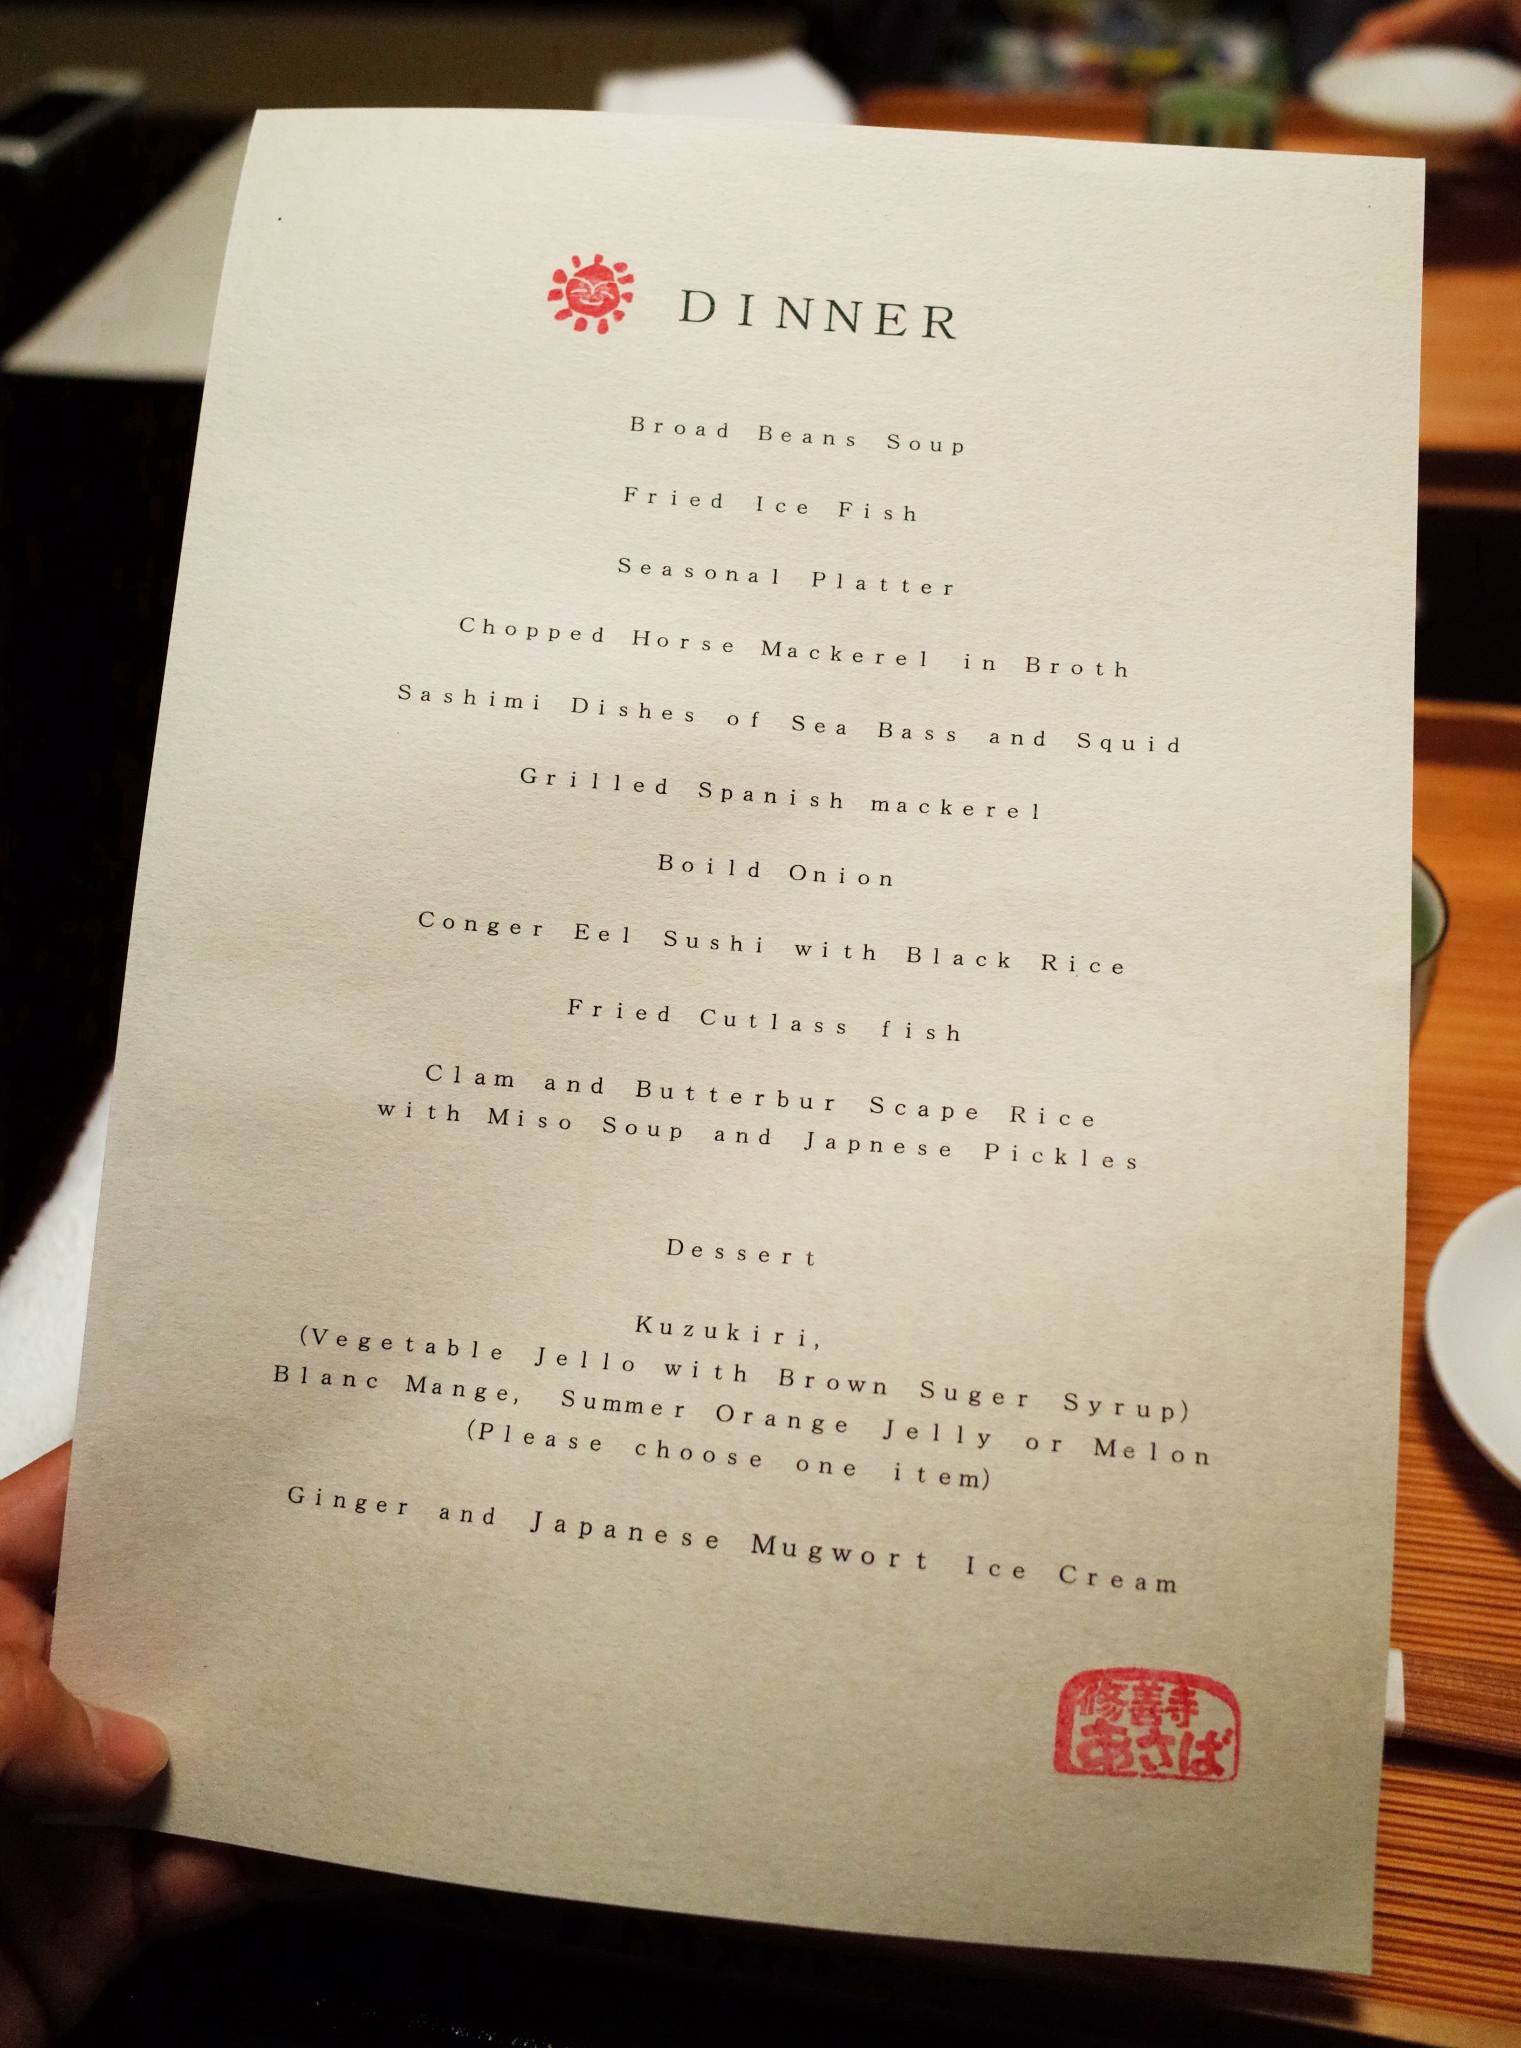 DINNER
Broad Beans Soup
Fried Ice Fish
Seasonal Platter
Chopped Horse Mackerel in Broth
Sashimi Dishes of Sea Bass and Squid
Grilled Spanish mackerel
Boild Onion
Conger Eel Sushi with Black Rice
Fried Cutlass fish
Clam and Butterbur Scape Rice
with Miso Soup and Japnese Pickles
Dessert
Kuzukiri,
(Vegetable Jello with Brown Suger Syrup)
Blanc Mange, Summer Orange Jelly or Melon
(Please choose one item)
Ginger and Japanese Mugwort Ice Cream
修善寺
あさば